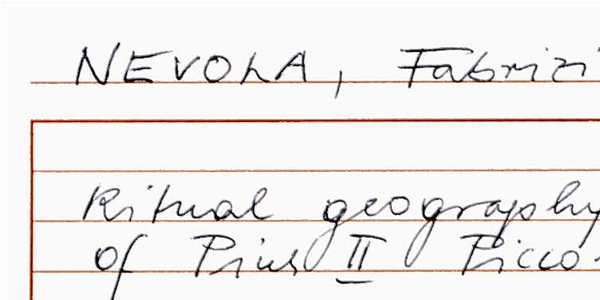 NEVOLA, Fabrizi
Ritual geography
of Pius II Picco